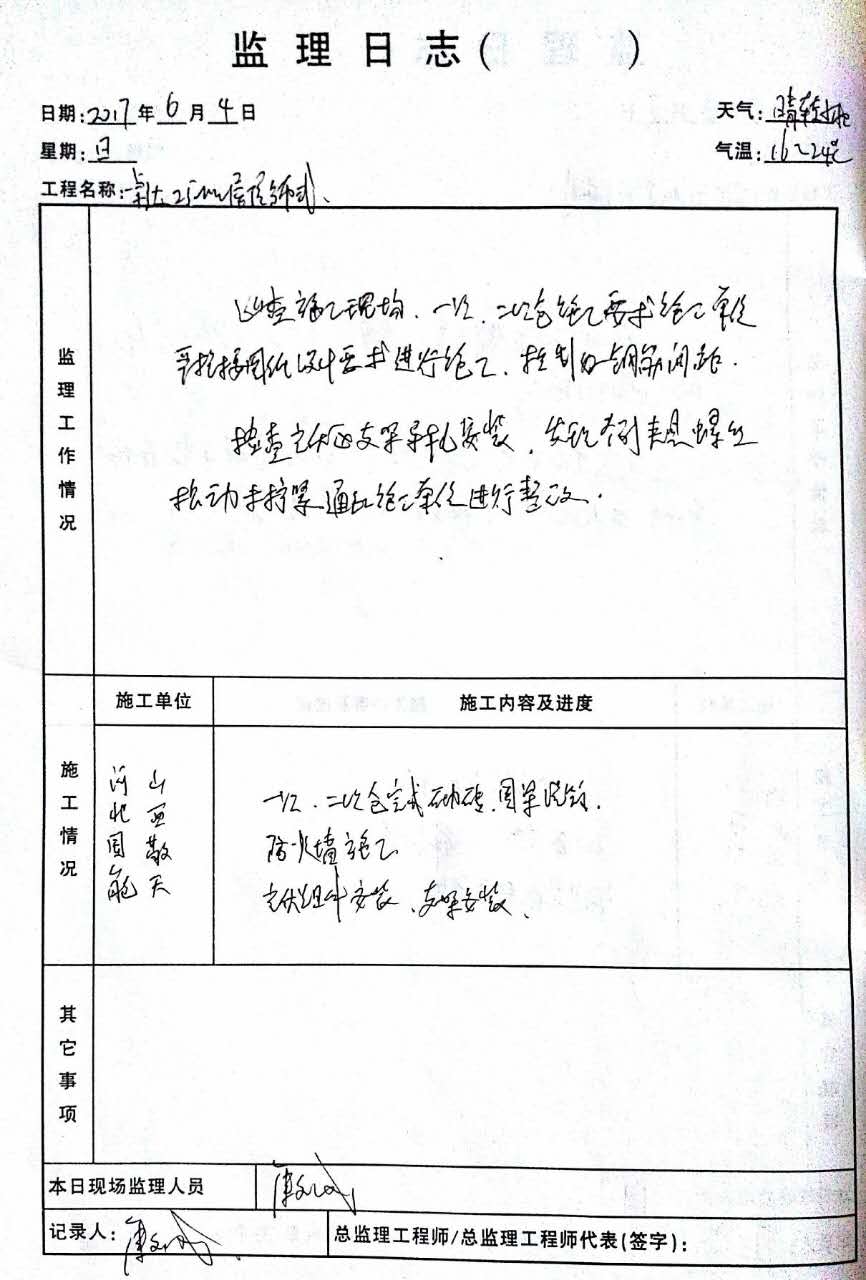 监理日志( )
日期:2017年6月4日 天气:晴转
星期:日 气温:16~24℃
工程名称:卓达25MW屋顶分布式、
监理工作情况
巡查施工现场、一次、二次仓施工要求施工单位
严格按图纸设计要求进行施工、控制好钢筋间距.
检查光伏区支架导轨安装,发现有列夹具螺丝
松动未拧紧通知施工单位进行整改.
施工情况
施工单位 施工内容及进度
河北国能 山西 天
一次、二次仓完成砌砖、
防火墙施工
光伏组件安装、支架安装、
其它事项
本日现场监理人员
记录人: 总监理工程师/总监理工程师代表(签字):